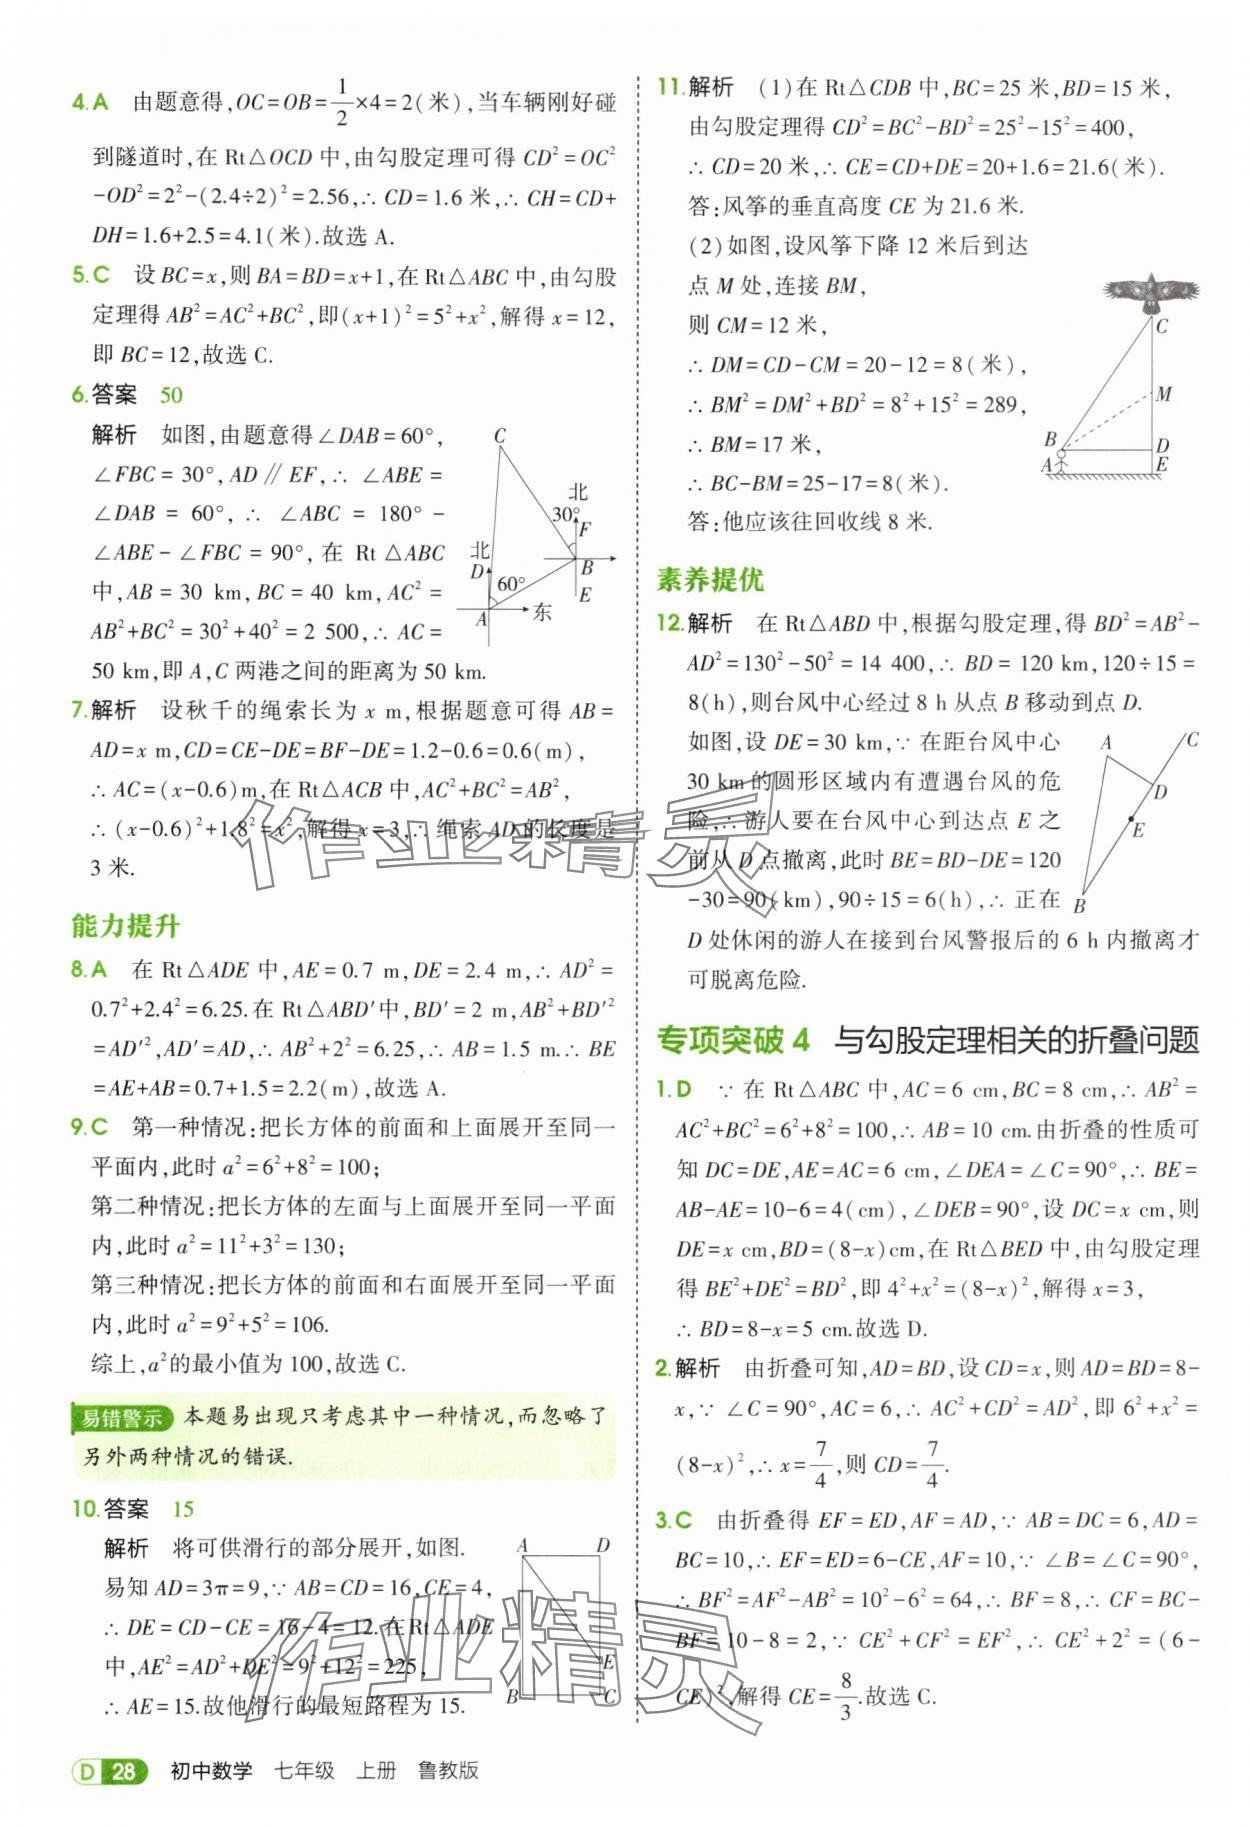 4.A 由题意得,OC=OB=1/2×4=2(米),当车辆刚好碰
到隧道时,在 Rt△OCD 中,由勾股定理可得 CD²=OC²
-OD²=2²-(2.4÷2)²=2.56,∴ CD=1.6 米,∴ CH=CD+
DH=1.6+2.5=4.1(米).故选 A.
5.C 设 BC=x,则 BA=BD=x+1,在 Rt△ABC 中,由勾股
定理得 AB²=AC²+BC²,即(x+1)²=5²+x²,解得 x=12,
即 BC=12,故选 C.
6.答案 50
解析 如图,由题意得∠DAB=60°,
∠FBC=30°,AD∥EF,∴ ∠ABE=
∠DAB=60°,∴ ∠ABC=180°-
∠ABE-∠FBC=90°,在 Rt△ABC
中,AB=30 km,BC=40 km,AC²=
AB²+BC²=30²+40²=2 500,∴ AC=
50 km,即 A,C 两港之间的距离为 50 km.
C
北
30°
F
北
D
60°
B
E
A
东
7.解析 设秋千的绳索长为 x m,根据题意可得 AB=
AD=x m,CD=CE-DE=BF-DE=1.2-0.6=0.6(m),
∴ AC=(x-0.6)m,在 Rt△ACB 中,AC²+BC²=AB²,
∴ (x-0.6)²+1.8²=x²,解得 x=3,∴ 绳索 AD 的长度是
3 米.
能力提升
8.A 在 Rt△ADE 中,AE=0.7 m,DE=2.4 m,∴ AD²=
0.7²+2.4²=6.25.在 Rt△ABD′中,BD′=2 m,AB²+BD′²
=AD′²,AD′=AD,∴ AB²+2²=6.25,∴ AB=1.5 m.∴ BE
=AE+AB=0.7+1.5=2.2(m),故选 A.
9.C 第一种情况:把长方体的前面和上面展开至同一
平面内,此时 a²=6²+8²=100;
第二种情况:把长方体的左面与上面展开至同一平面
内,此时 a²=11²+3²=130;
第三种情况:把长方体的前面和右面展开至同一平面
内,此时 a²=9²+5²=106.
综上,a²的最小值为 100,故选 C.
易错警示 本题易出现只考虑其中一种情况,而忽略了
另外两种情况的错误.
10.答案 15
解析 将可供滑行的部分展开,如图.
易知 AD=3π=9,∵ AB=CD=16,CE=4,
∴ DE=CD-CE=16-4=12.在 Rt△ADE
中,AE²=AD²+DE²=9²+12²=225,
∴ AE=15.故他滑行的最短路程为 15.
A D
E
B C
11.解析 (1)在 Rt△CDB 中,BC=25 米,BD=15 米,
由勾股定理得 CD²=BC²-BD²=25²-15²=400,
∴ CD=20 米,∴ CE=CD+DE=20+1.6=21.6(米).
答:风筝的垂直高度 CE 为 21.6 米.
(2)如图,设风筝下降 12 米后到达
点 M 处,连接 BM,
则 CM=12 米,
∴ DM=CD-CM=20-12=8(米),
∴ BM²=DM²+BD²=8²+15²=289,
∴ BM=17 米,
∴ BC-BM=25-17=8(米).
答:他应该往回收线 8 米.
C
M
B
D
A
E
素养提优
12.解析 在 Rt△ABD 中,根据勾股定理,得 BD²=AB²-
AD²=130²-50²=14 400,∴ BD=120 km,120÷15=
8(h),则台风中心经过 8 h 从点 B 移动到点 D.
如图,设 DE=30 km,∵ 在距台风中心
30 km的圆形区域内有遭遇台风的危
险,∴ 游人要在台风中心到达点 E 之
前从 D 点撤离,此时 BE=BD-DE=120
-30=90(km),90÷15=6(h),∴ 正在
D 处休闲的游人在接到台风警报后的 6 h 内撤离才
可脱离危险.
A
C
D
E
B
专项突破 4 与勾股定理相关的折叠问题
1.D ∵ 在 Rt△ABC 中,AC=6 cm,BC=8 cm,∴ AB²=
AC²+BC²=6²+8²=100,∴ AB=10 cm.由折叠的性质可
知 DC=DE,AE=AC=6 cm,∠DEA=∠C=90°,∴ BE=
AB-AE=10-6=4(cm),∠DEB=90°,设 DC=x cm,则
DE=x cm,BD=(8-x)cm,在 Rt△BED 中,由勾股定理
得 BE²+DE²=BD²,即 4²+x²=(8-x)²,解得 x=3,
∴ BD=8-x=5 cm.故选 D.
2.解析 由折叠可知,AD=BD,设 CD=x,则 AD=BD=8-
x,∵ ∠C=90°,AC=6,∴ AC²+CD²=AD²,即 6²+x²=
(8-x)²,∴ x=7/4,则 CD=7/4.
3.C 由折叠得 EF=ED,AF=AD,∵ AB=DC=6,AD=
BC=10,∴ EF=ED=6-CE,AF=10,∵ ∠B=∠C=90°,
∴ BF²=AF²-AB²=10²-6²=64,∴ BF=8,∴ CF=BC-
BF=10-8=2,∵ CE²+CF²=EF²,∴ CE²+2²=(6-
CE)²,解得 CE=8/3.故选 C.
作业精灵
作业精灵
D 28 初中数学 七年级 上册 鲁教版